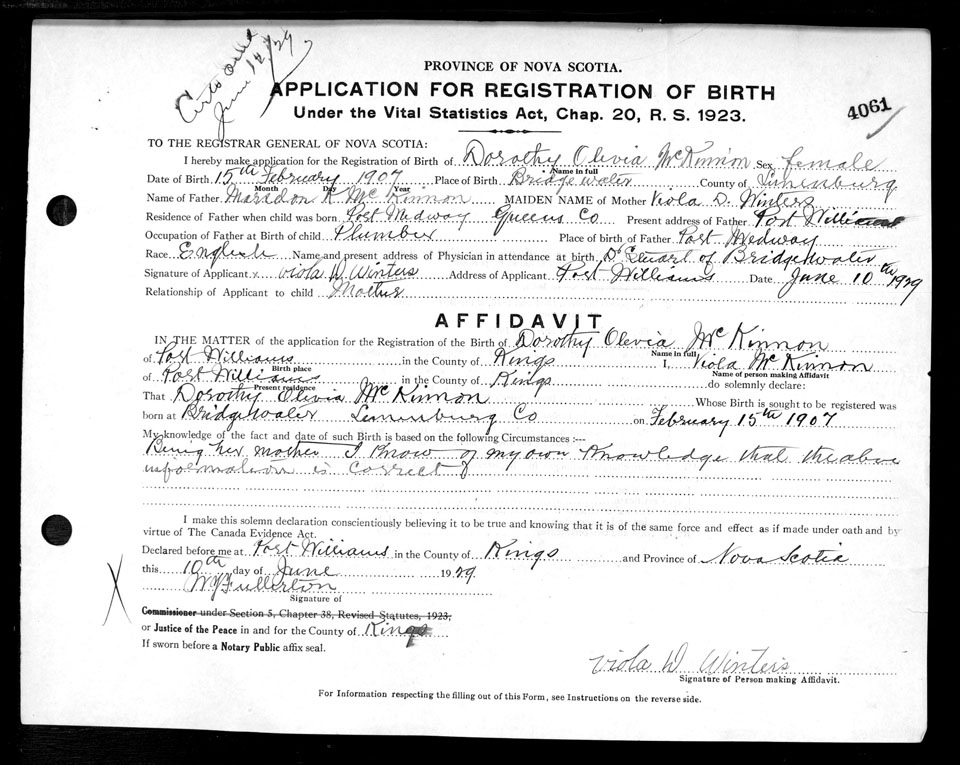 Certs asked
June 14/29
PROVINCE OF NOVA SCOTIA.
APPLICATION FOR REGISTRATION OF BIRTH
4061
Under the Vital Statistics Act, Chap. 20, R. S. 1923.
TO THE REGISTRAR GENERAL OF NOVA SCOTIA:
I hereby make application for the Registration of Birth of Dorothy Olivia McKinnon Sex female
Name in full
Date of Birth 15th February 1907 Place of Birth Bridgewater County of Lunenburg
Month Day Year
Name of Father K McKinnon MAIDEN NAME of Mother Viola D. Winters
Residence of Father when child was born Port Medway Queens Co Present address of Father Port Williams
Occupation of Father at Birth of child Plumber Place of birth of Father Port Medway
Race English Name and present address of Physician in attendance at birth Dr Stuart of Bridgewater
Signature of Applicant x Viola D Winters Address of Applicant Port Williams Date June 10th 1929
Relationship of Applicant to child Mother
AFFIDAVIT
IN THE MATTER of the application for the Registration of the Birth of Dorothy Olevia McKinnon
Name in full
of Port Williams in the County of Kings I, Viola McKinnon
Birth place Name of person making Affidavit
of Port Williams in the County of Kings do solemnly declare:
Present residence
That Dorothy Olivia McKinnon Whose Birth is sought to be registered was
born at Bridgewater Lunenburg Co on February 15th 1907
My knowledge of the fact and date of such Birth is based on the following Circumstances:--
Being her mother I know of my own knowledge that the above
information is correct
I make this solemn declaration conscientiously believing it to be true and knowing that it is of the same force and effect as if made under oath and by
virtue of The Canada Evidence Act.
Declared before me at Port Williams in the County of Kings and Province of Nova Scotia
this 10th day of June 1929
X W Y Fullerton
Signature of
Commissioner under Section 5, Chapter 38, Revised Statutes, 1923,
or Justice of the Peace in and for the County of Kings
If sworn before a Notary Public affix seal.
Viola D Winters
Signature of Person making Affidavit.
For Information respecting the filling out of this Form, see Instructions on the reverse side.